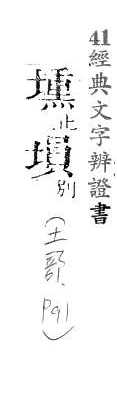 41經典文字辨證書
壎正
塤別
(土部,P91)